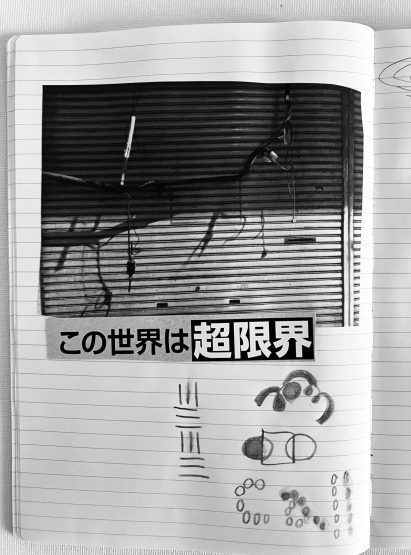 この世界は超限界